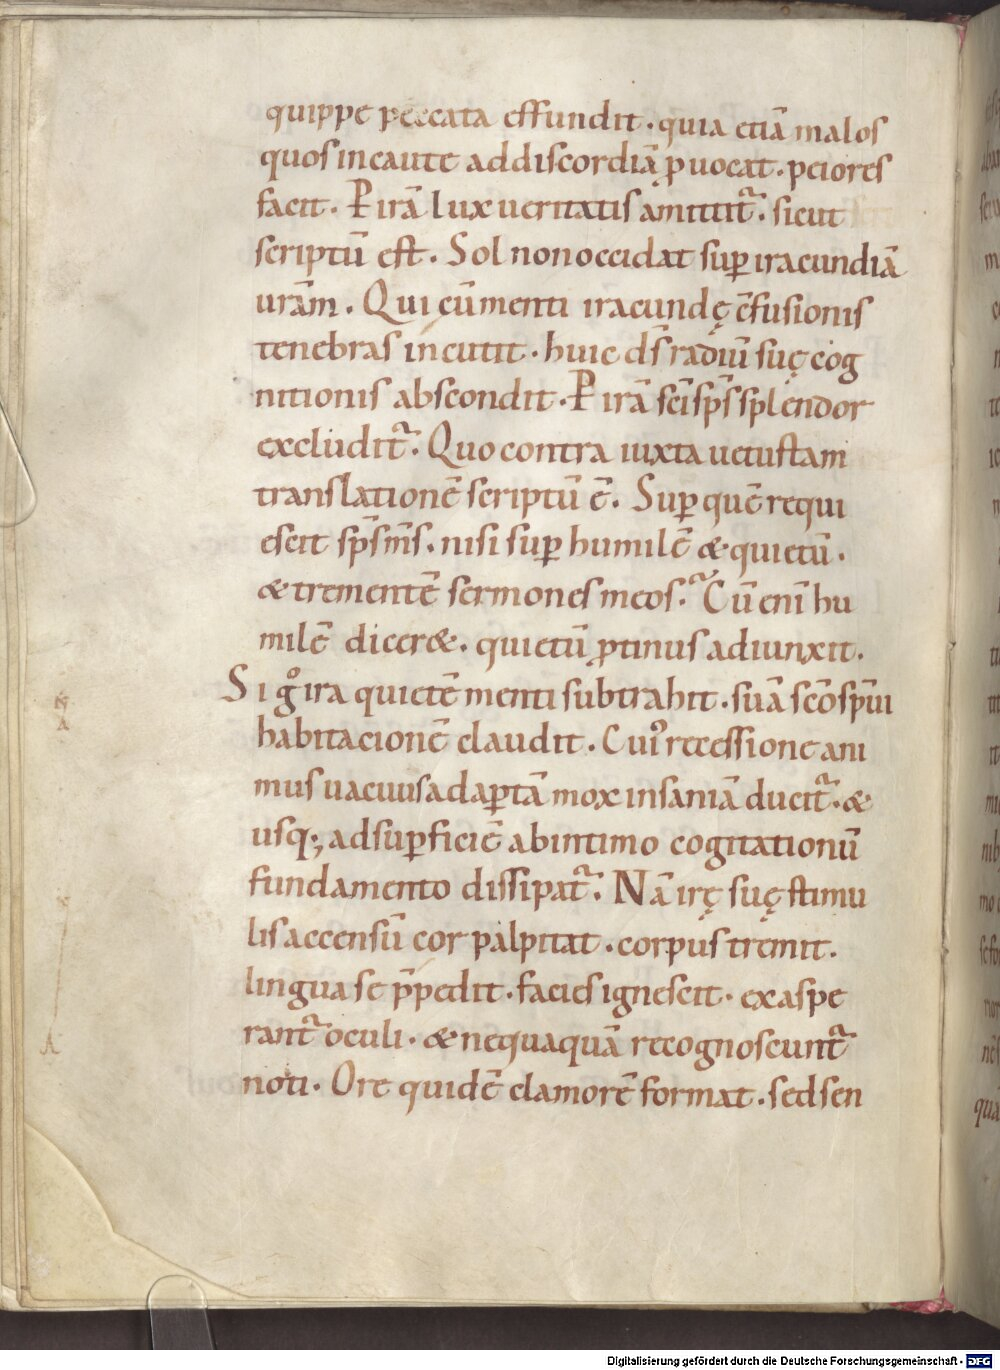 quippe peccata effundit · quia etiā malos
quos incaute ad discordiā ꝓuocat · peiores
facit · P irā lux ueritatis amittit᷑ · sicut
scriptū est · Sol non occidat suꝑ iracundiā
urām · Qui cū menti iracundę c̄fusionis
tenebras incutit · huic d̄s radiū suę cog
nitionis abscondit · P irā sc̄i sp̄s splendor
excludit᷑ · Quo contra iuxta uetustam
translationē scriptū ē · Suꝑ quē requi
escit sp̄s m̄s · nisi suꝑ humilē & quietū ·
& trementē sermones meos · Cū enī hu
milē dicer& · quietū ꝓtinus adiunxit ·
Si gͦ ira quietē menti subtrahit · suā sc̄o sp̄ui
habitacionē claudit · Cuiꝰ recessione ani
mus uacuus ad aꝑtā mox insaniā ducit᷑ · &
usq; ad suꝑficiē ab intimo cogitationū
fundamento dissipat᷑ · Nā irę suę stimu
lis accensū cor palpitat · corpus tremit ·
lingua se p̄pedit · facies ignescit · exaspe
rant᷑ oculi · & nequaquā recognoscunt᷑
noti · Ore quidē clamorē format · sed sen
N
A
A
Digitalisierung gefördert durch die Deutsche Forschungsgemeinschaft - DFG